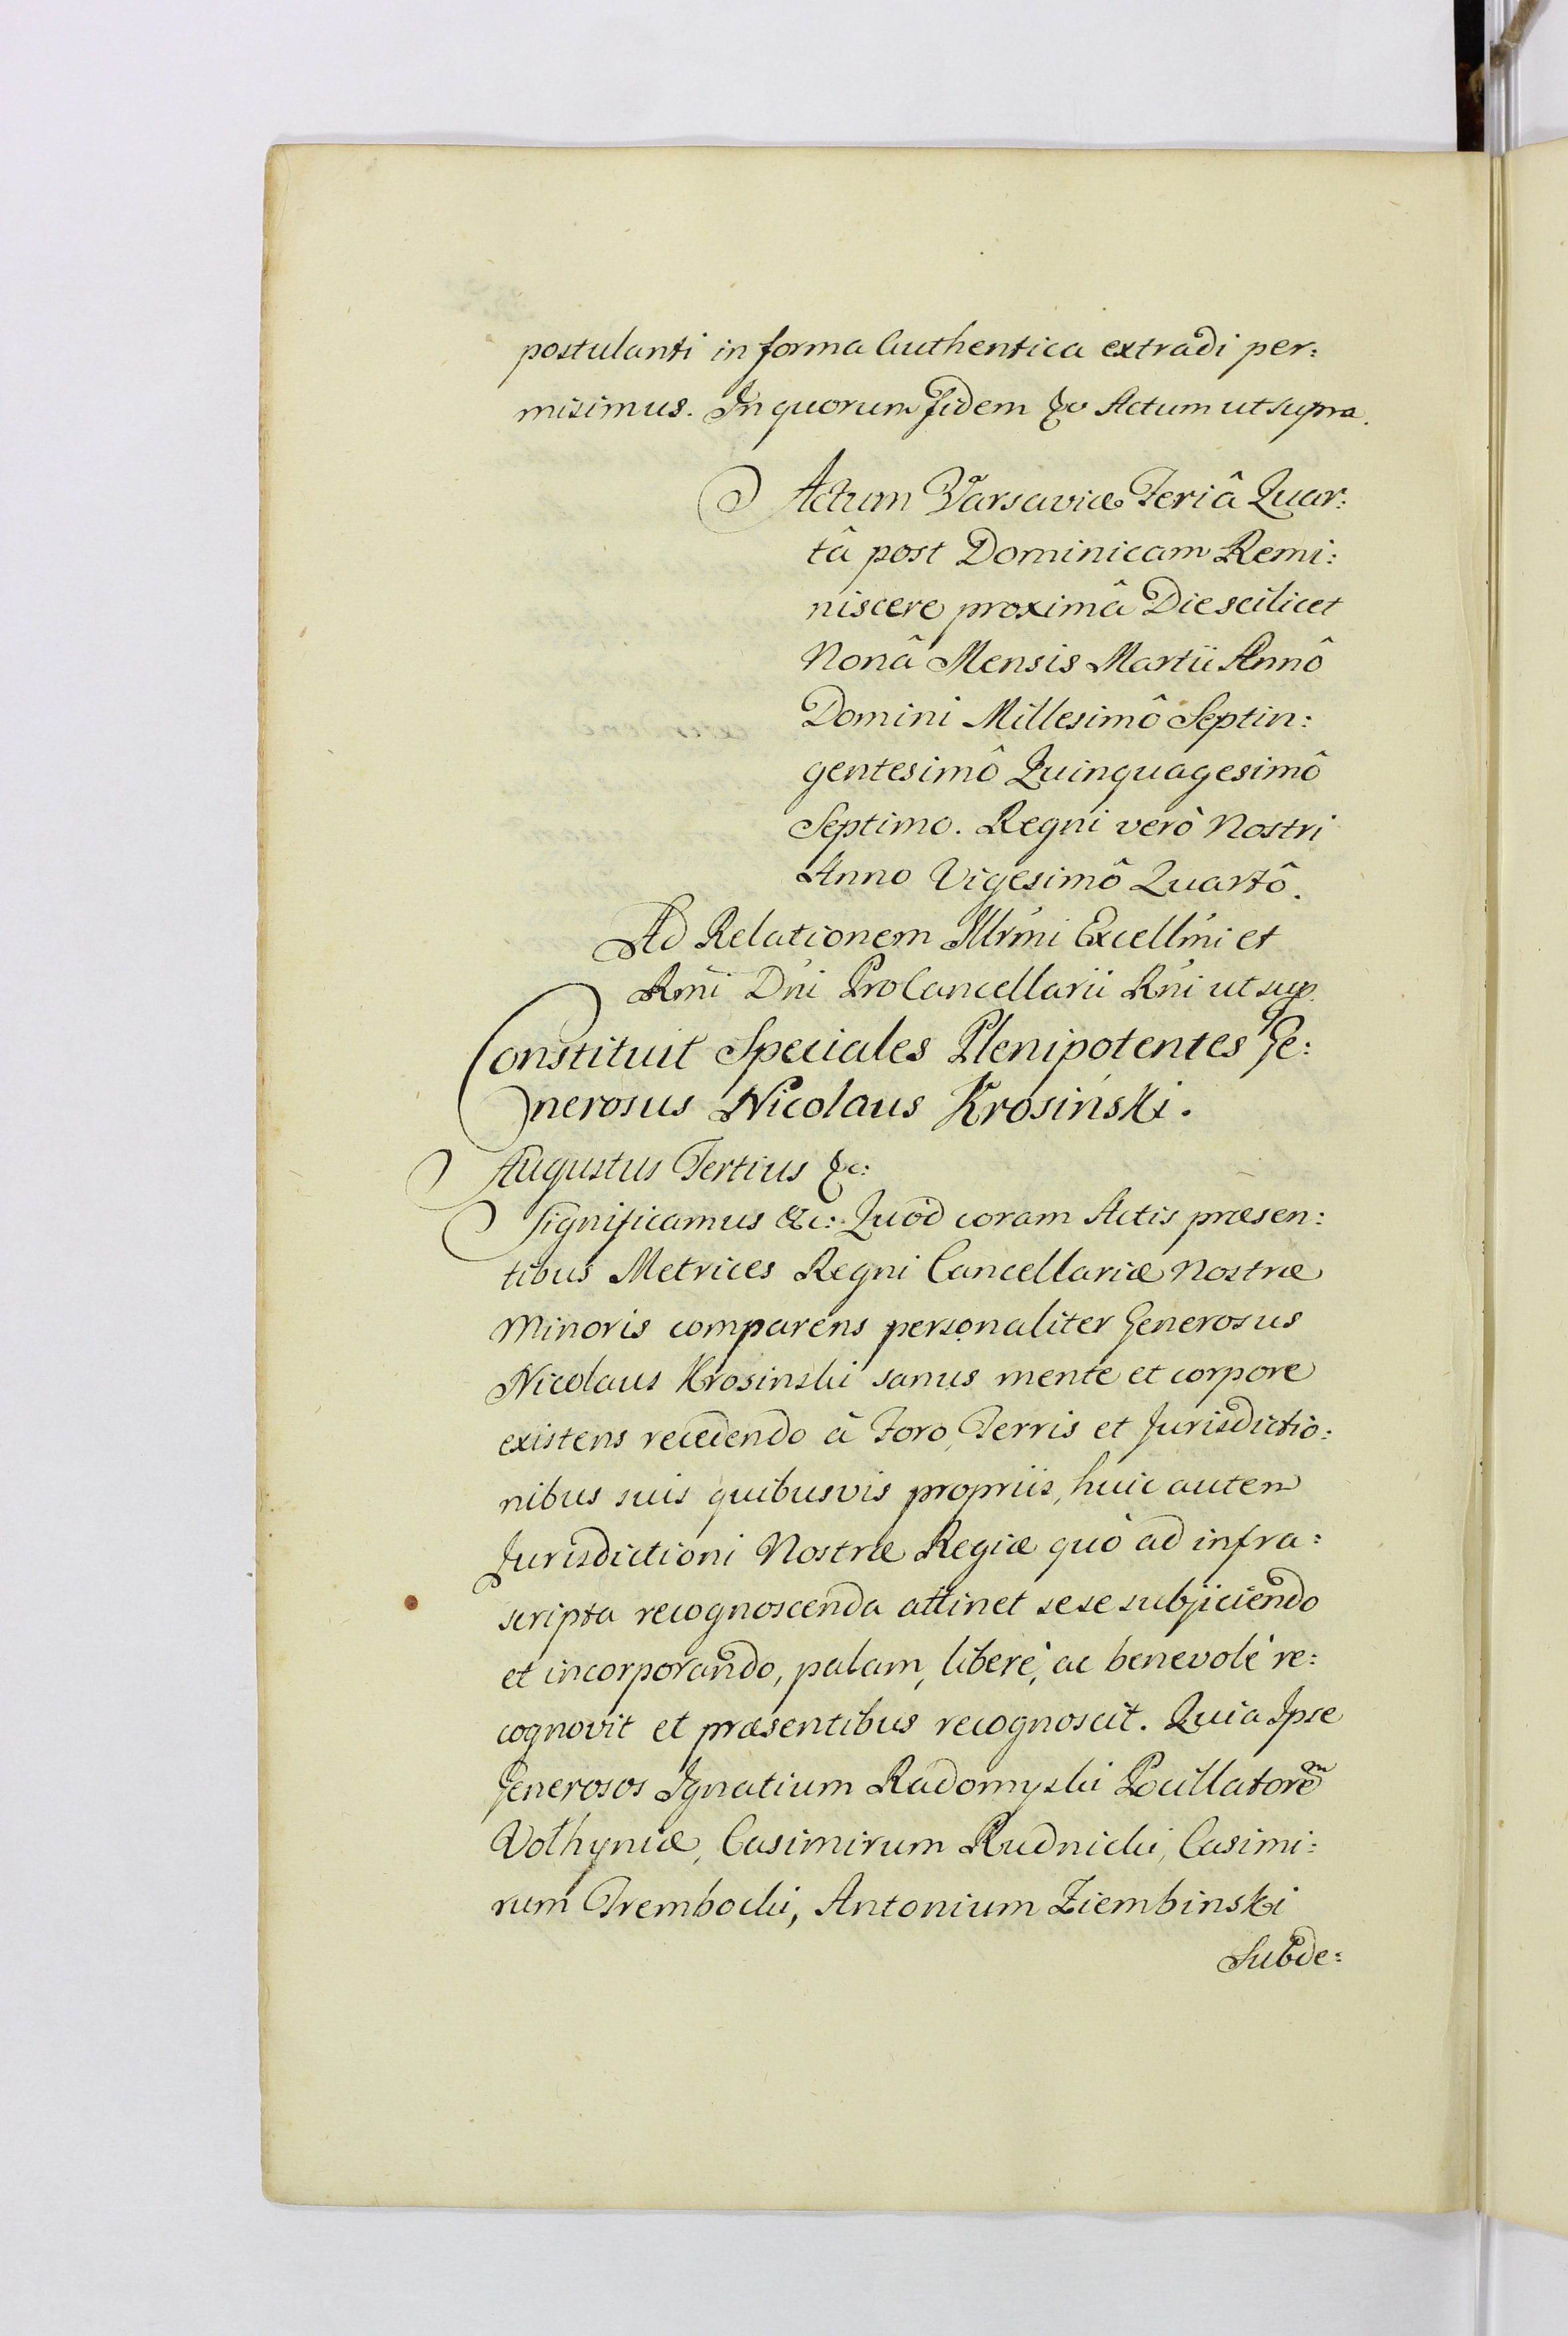 postulanti in forma Authentica extradi per:
misimus. In quorum fidem &c Actum ut supra.
Actum Varsaviæ Feriâ Quar:
tâ post Dominicam Remi:
niscere proximâ Die scilicet
Nonâ Mensis Martii Annô
Domini Millesimô Septin:
gentesimô Quinquagesimô
Septimo. Regni verò Nostri
Anno Vigesimô Quartô.
Ad Relationem Illrmi Excellmi et
Rmi Dni ProCancellarii Rni ut sup.
Constituit Speciales Plenipotentes Ge:
nerosus Nicolaus Krosinski.
Augustus Tertius &c:
Significamus &c: Quod coram Actis præsen:
tibus Metrices Regni Cancellariæ Nostræ
Minoris comparens personaliter Generosus
Nicolaus Krosinski sanus mente et corpore
existens recedendo à Foro, Terris et Jurisdictio:
nibus suis quibusvis propriis, huic autem
Jurisdictioni Nostræ Regiæ quò ad infra:
scripta recognoscenda attinet sese subjiciendo
et incorporando, palam, liberè, ac benevolè re:
cognovit et præsentibus recognoscit. Quia Ipse
Generosos Ignatium Radomyski Pocillatorem
Volhyniæ, Casimirum Rudnicki, Casimi:
rum Trembocki, Antonium Ziembinski
Subde: